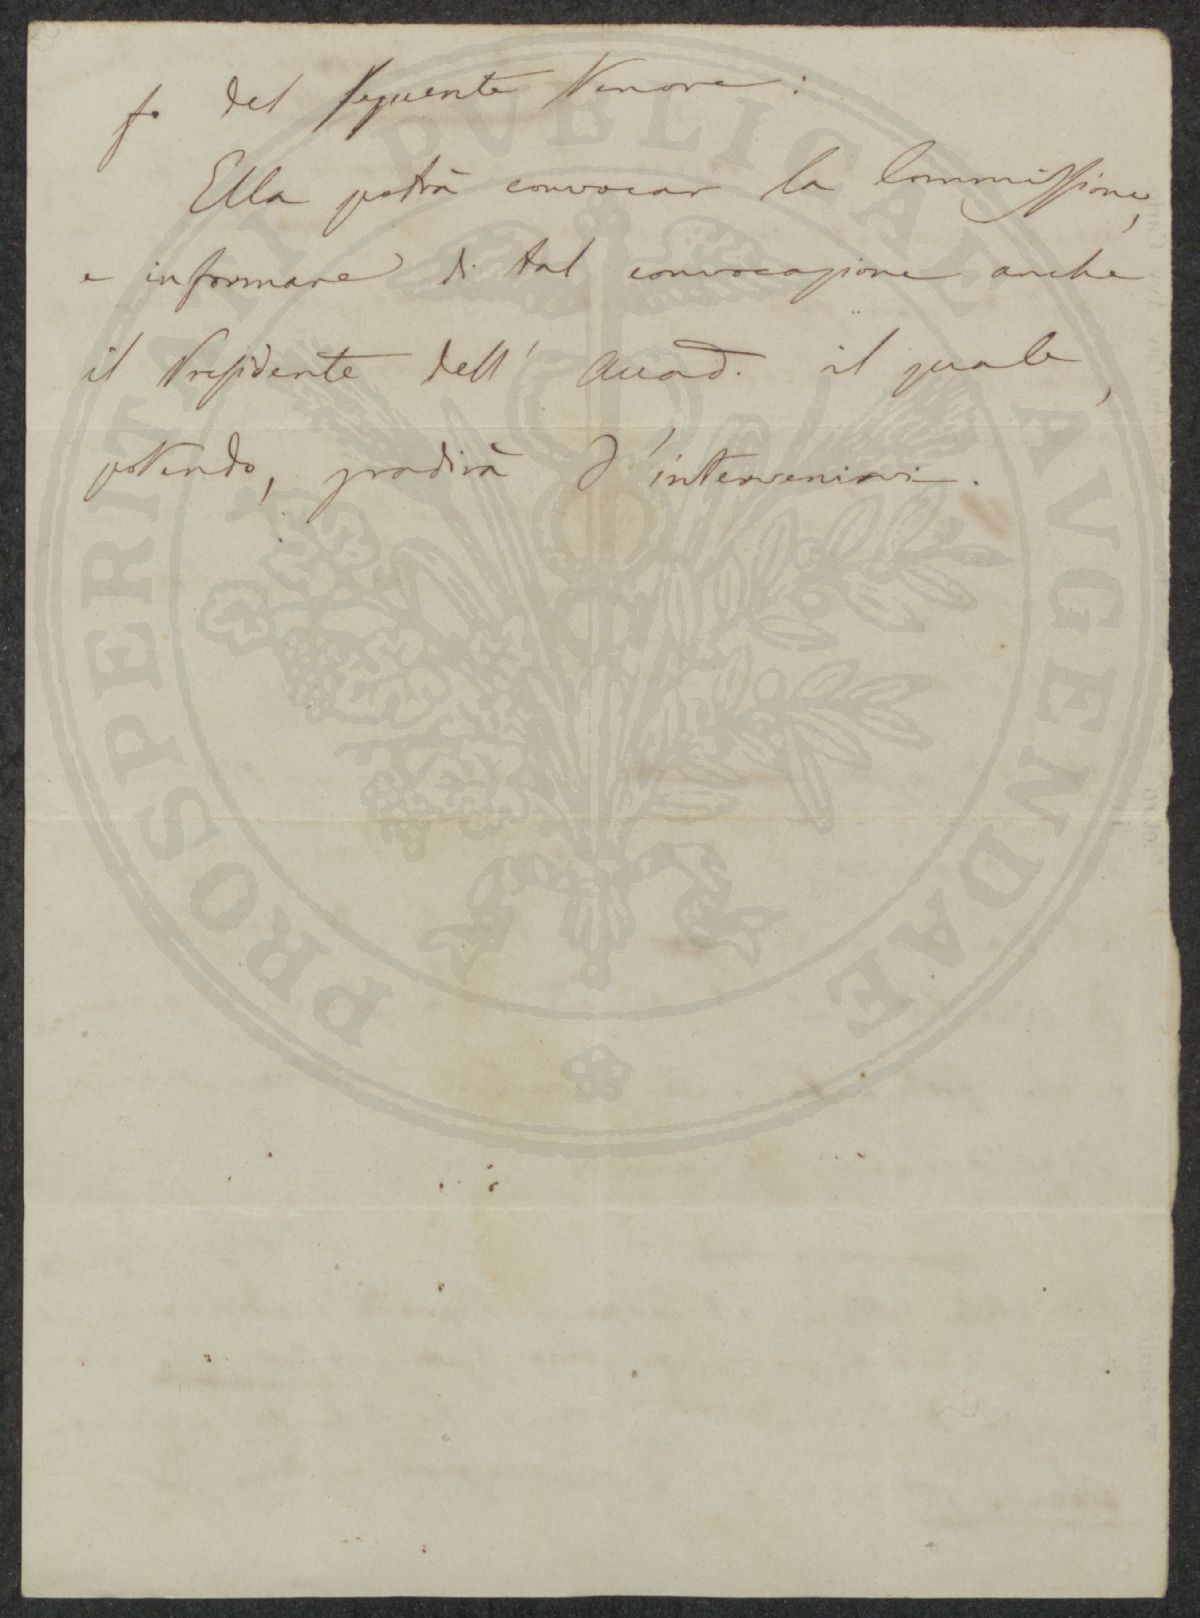 fo del seguente tenore:
Ella potrà convocar la Commissione,
e informare di tal convocazione anche
il Presidente dell' Accad. il quale,
potendo, gradirà d'intervenirvi.
PROSPERITATI PVBLICAE AVGENDAE